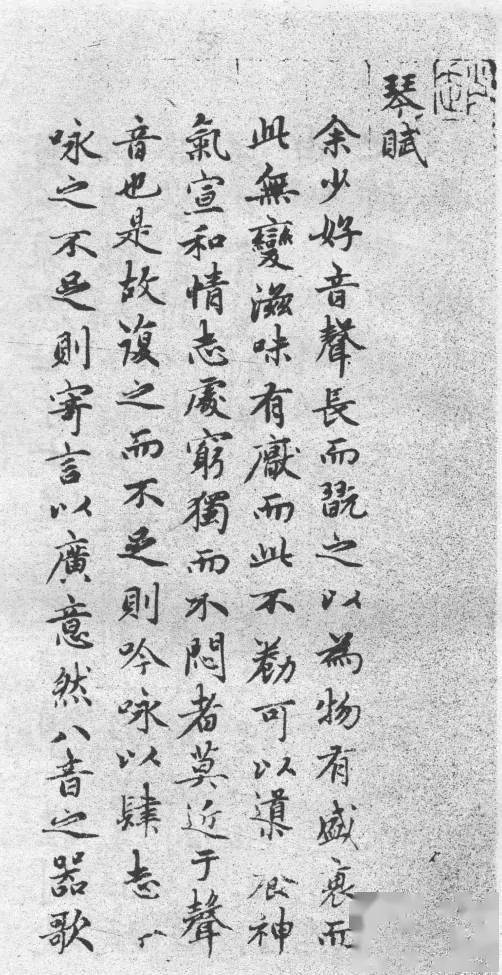 琴賦
余少好音聲長而翫之以為物有盛衰而
此無變滋味有厭而此不勌可以導養神
氣宣和情志處窮獨而不悶者莫近于聲
音也是故復之而不足則吟咏以肆志〻
咏之不足則寄言以廣意然八音之器歌